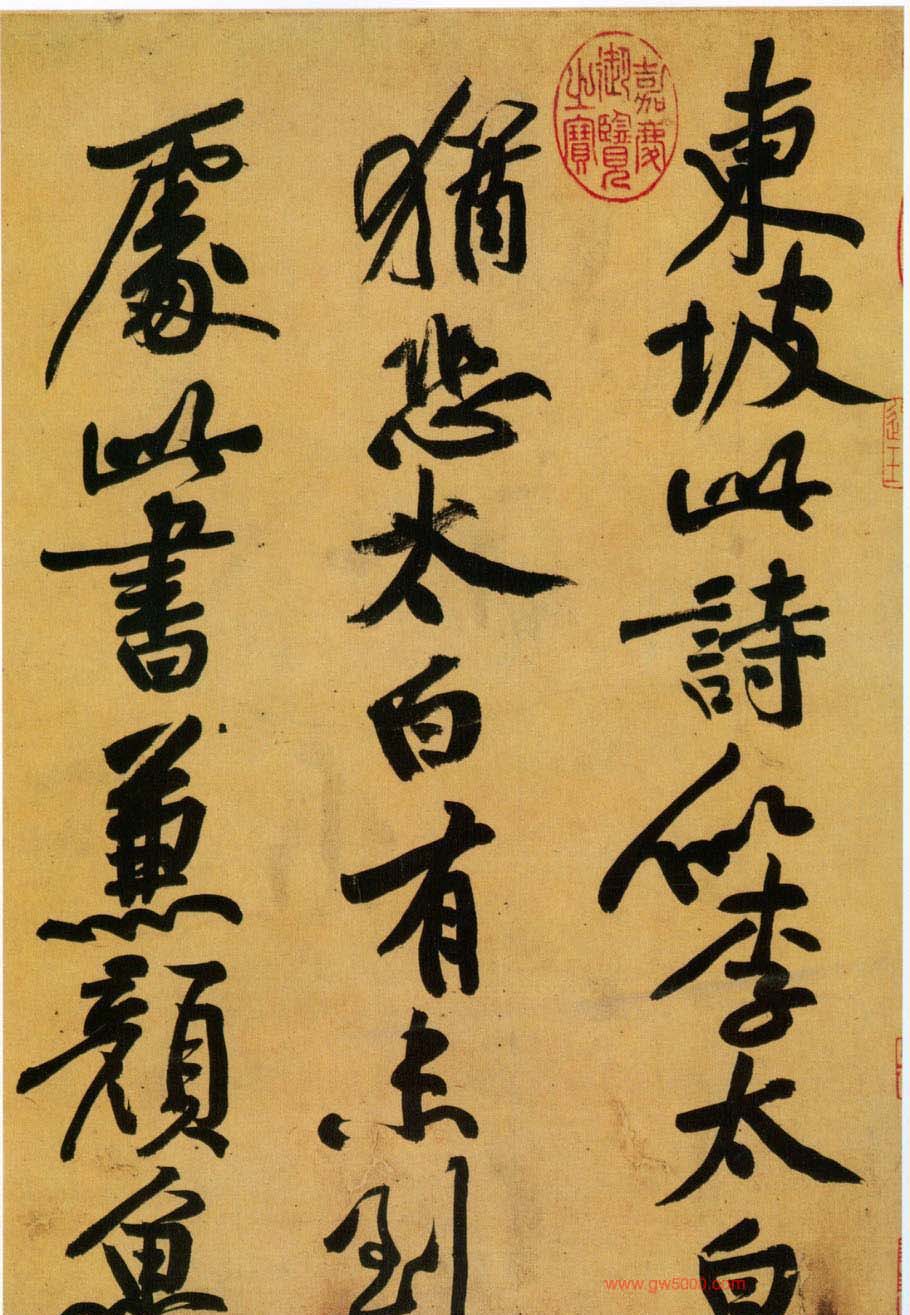 東坡此詩似李太白
猶恐太白有未到
處此書兼顔魯
嘉慶
御覽
之寶
www.gw5000.com